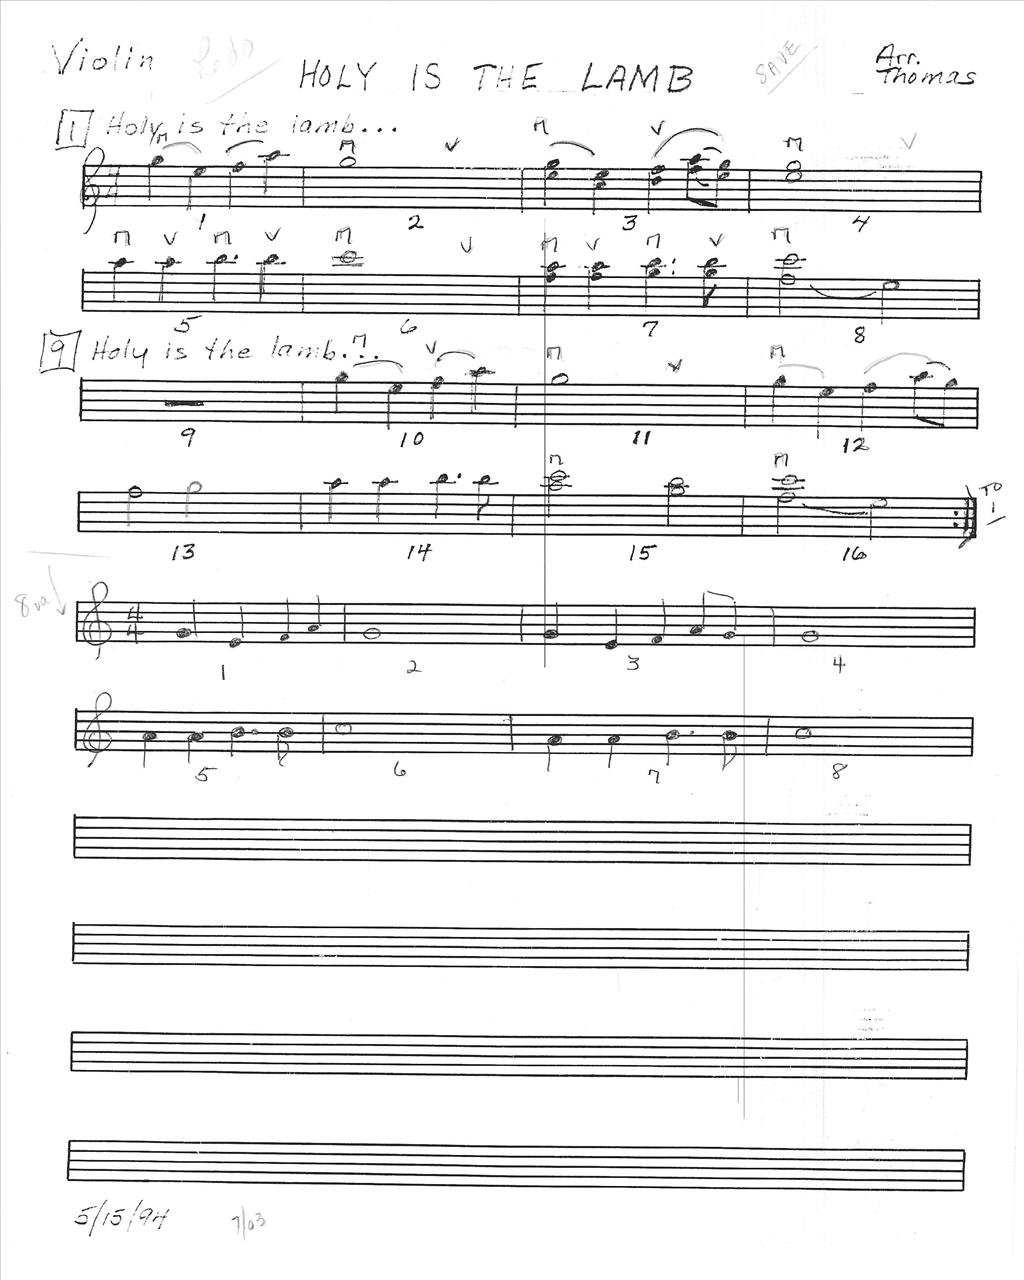 Violin Redo
HOLY IS THE LAMB
SAVE
Arr.
Thomas
1 Holy is the lamb...
4
4
1 2 3 4
5 6 7 8
9 Holy is the lamb...
9 10 11 12
13 14 15 16
TO
1
8va
4
4
1 2 3 4
5 6 7 8
5/15/94 7/03